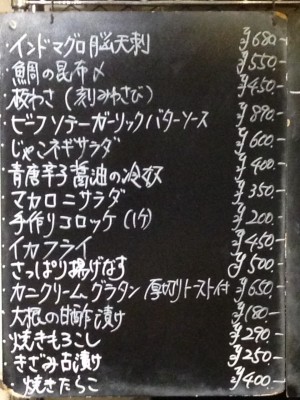 ・インドマグロ脳天刺 ¥680-
鯛の昆布〆 ¥550-
板わさ(刻みわさび) ¥450-
ビーフソテーガーリックバターソース ¥890-
じゃこネギサラダ ¥600-
青唐辛子醤油の冷奴 ¥400-
マカロニサラダ ¥350-
手作りコロッケ(1ケ) ¥200-
イカフライ ¥450-
さっぱり揚げなす ¥500-
カニクリームグラタン 厚切りトースト付 ¥650-
大根の甘酢漬け ¥180-
焼きもろこし ¥290-
きざみ古漬け ¥250-
・焼きたらこ ¥400-